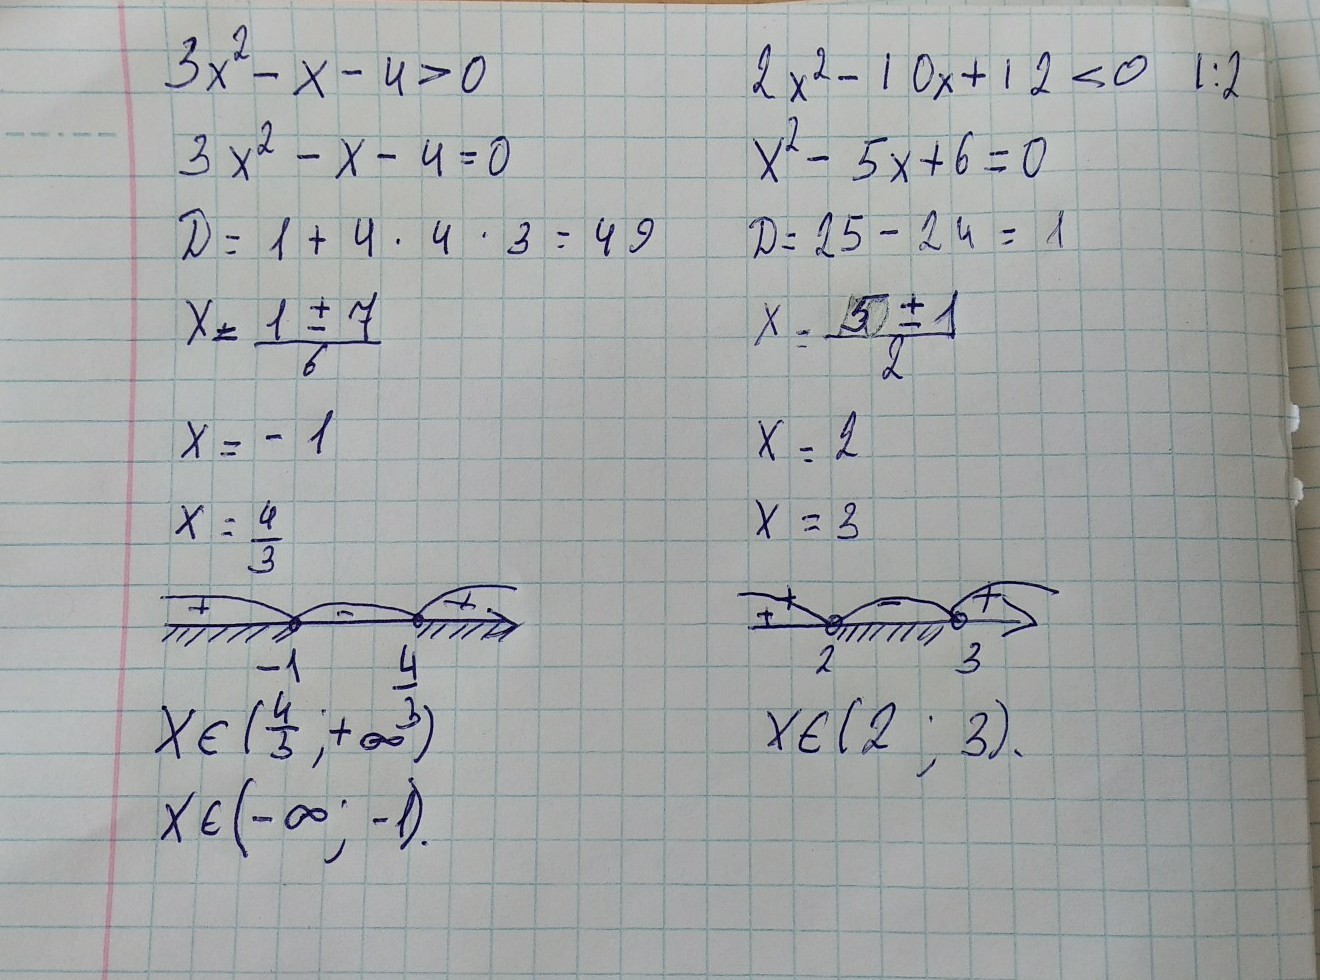 3x² - x - 4 > 0
3x² - x - 4 = 0
D = 1 + 4 · 4 · 3 = 49
x = (1 ± 7)/6
x = -1
x = 4/3
+ - +
-1 4/3
x ∈ (4/3; +∞)
x ∈ (-∞; -1).
2x² - 10x + 12 < 0 |:2
x² - 5x + 6 = 0
D = 25 - 24 = 1
x = (5 ± 1)/2
x = 2
x = 3
+ + - +
2 3
x ∈ (2; 3).